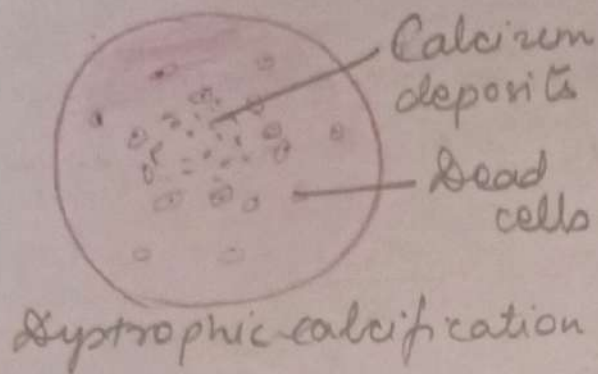 Calcium
deposits
Dead
cells
Dystrophic calcification